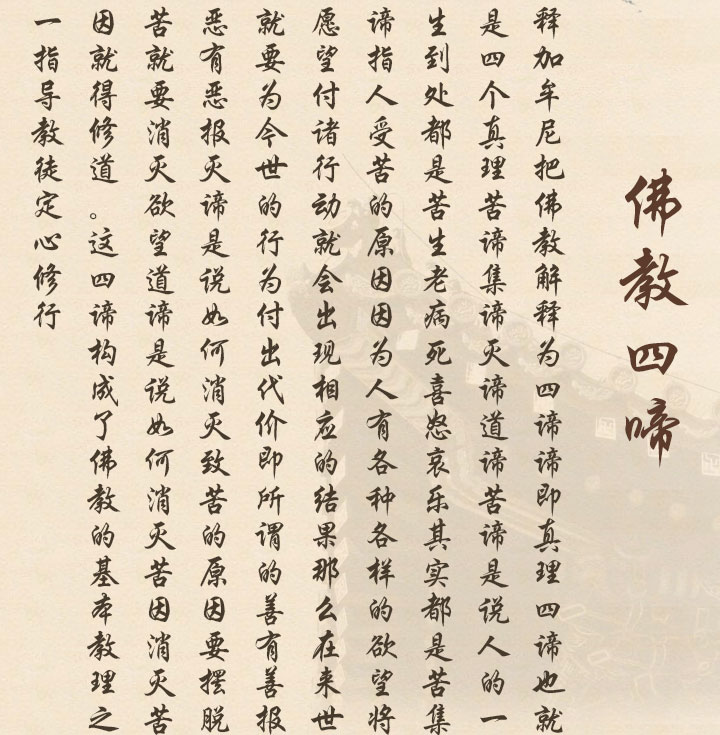 佛教四啼
释加牟尼把佛教解释为四谛谛即真理四谛也就
是四个真理苦谛集谛灭谛道谛苦谛是说人的一
生到处都是苦生老病死喜怒哀乐其实都是苦集
谛指人受苦的原因因为人有各种各样的欲望将
愿望付诸行动就会出现相应的结果那么在来世
就要为今世的行为付出代价即所谓的善有善报
恶有恶报灭谛是说如何消灭致苦的原因要摆脱
苦就要消灭欲望道谛是说如何消灭苦因消灭苦
因就得修道。这四谛构成了佛教的基本教理之
一指导教徒定心修行